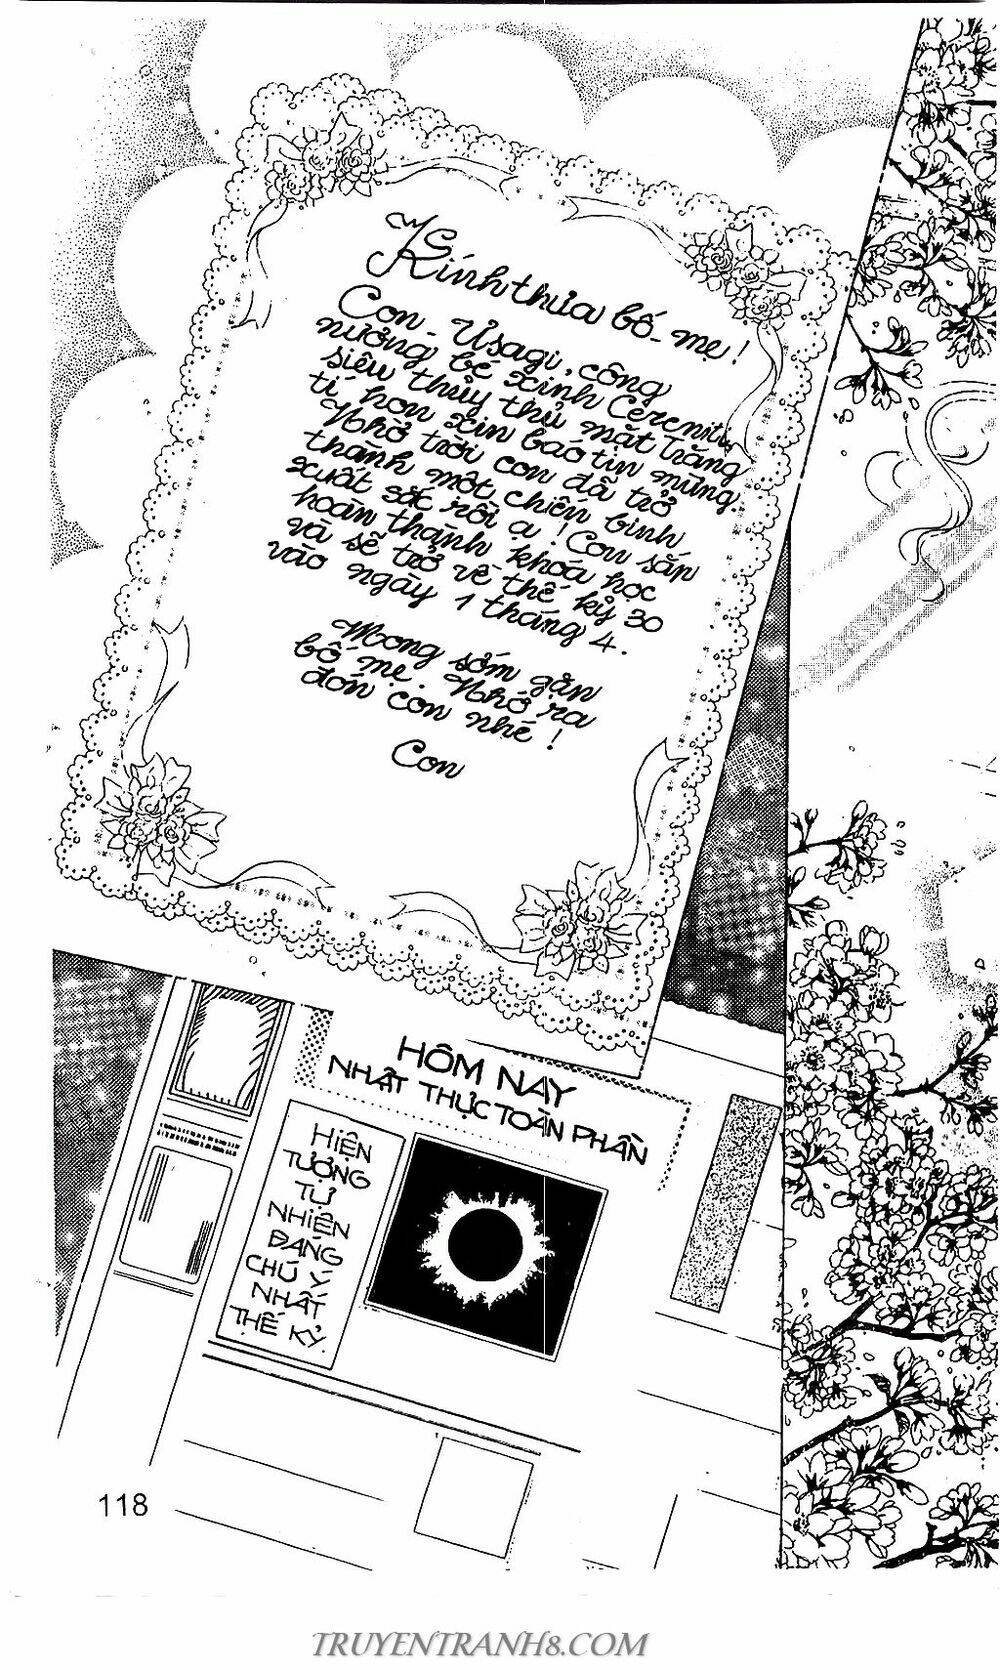 Kính thưa bố mẹ!
Con - Usagi, công
nương bé xinh Cereniti,
siêu thủy thủ mặt Trăng
tí hon xin báo tin mừng.
Nhờ trời con đã trở
thành một chiến binh
xuất sắc rồi ạ! Con sắp
hoàn thành khóa học
và sẽ trở về thế kỷ 30
vào ngày 1 tháng 4.
Mong sớm gặp
bố mẹ. Nhớ ra
đón con nhé!
Con
HÔM NAY
NHẬT THỰC TOÀN PHẦN
HIỆN
TƯỢNG
TỰ
NHIÊN
ĐÁNG
CHÚ Ý
NHẤT
THẾ KỶ
118
TRUYENTRANH8.COM